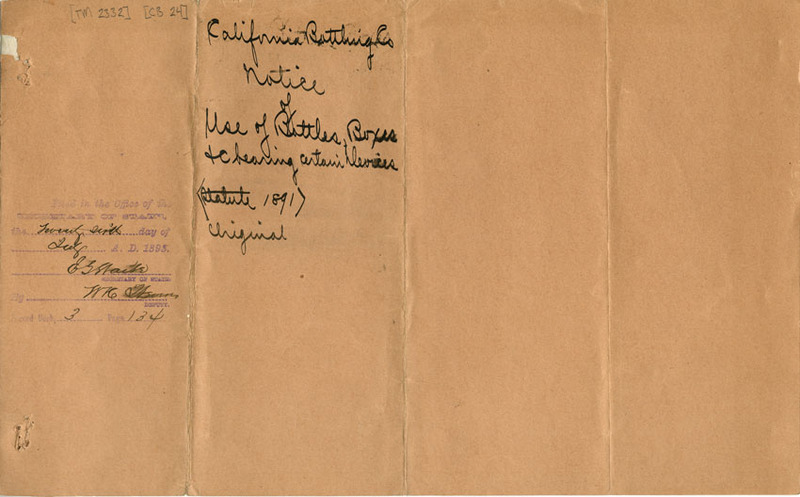 [TM 2332] [CB 24]
California Bottling Co
Notice
of
Use of Bottles, Boxes
&c bearing certain Devices
(Statute 1891)
Original
Filed in the Office of the
SECRETARY OF STATE,
the Twenty sixth day of
July A. D. 1895.
SECRETARY OF STATE
By W H
DEPUTY.
Record Book, 3 Page 134